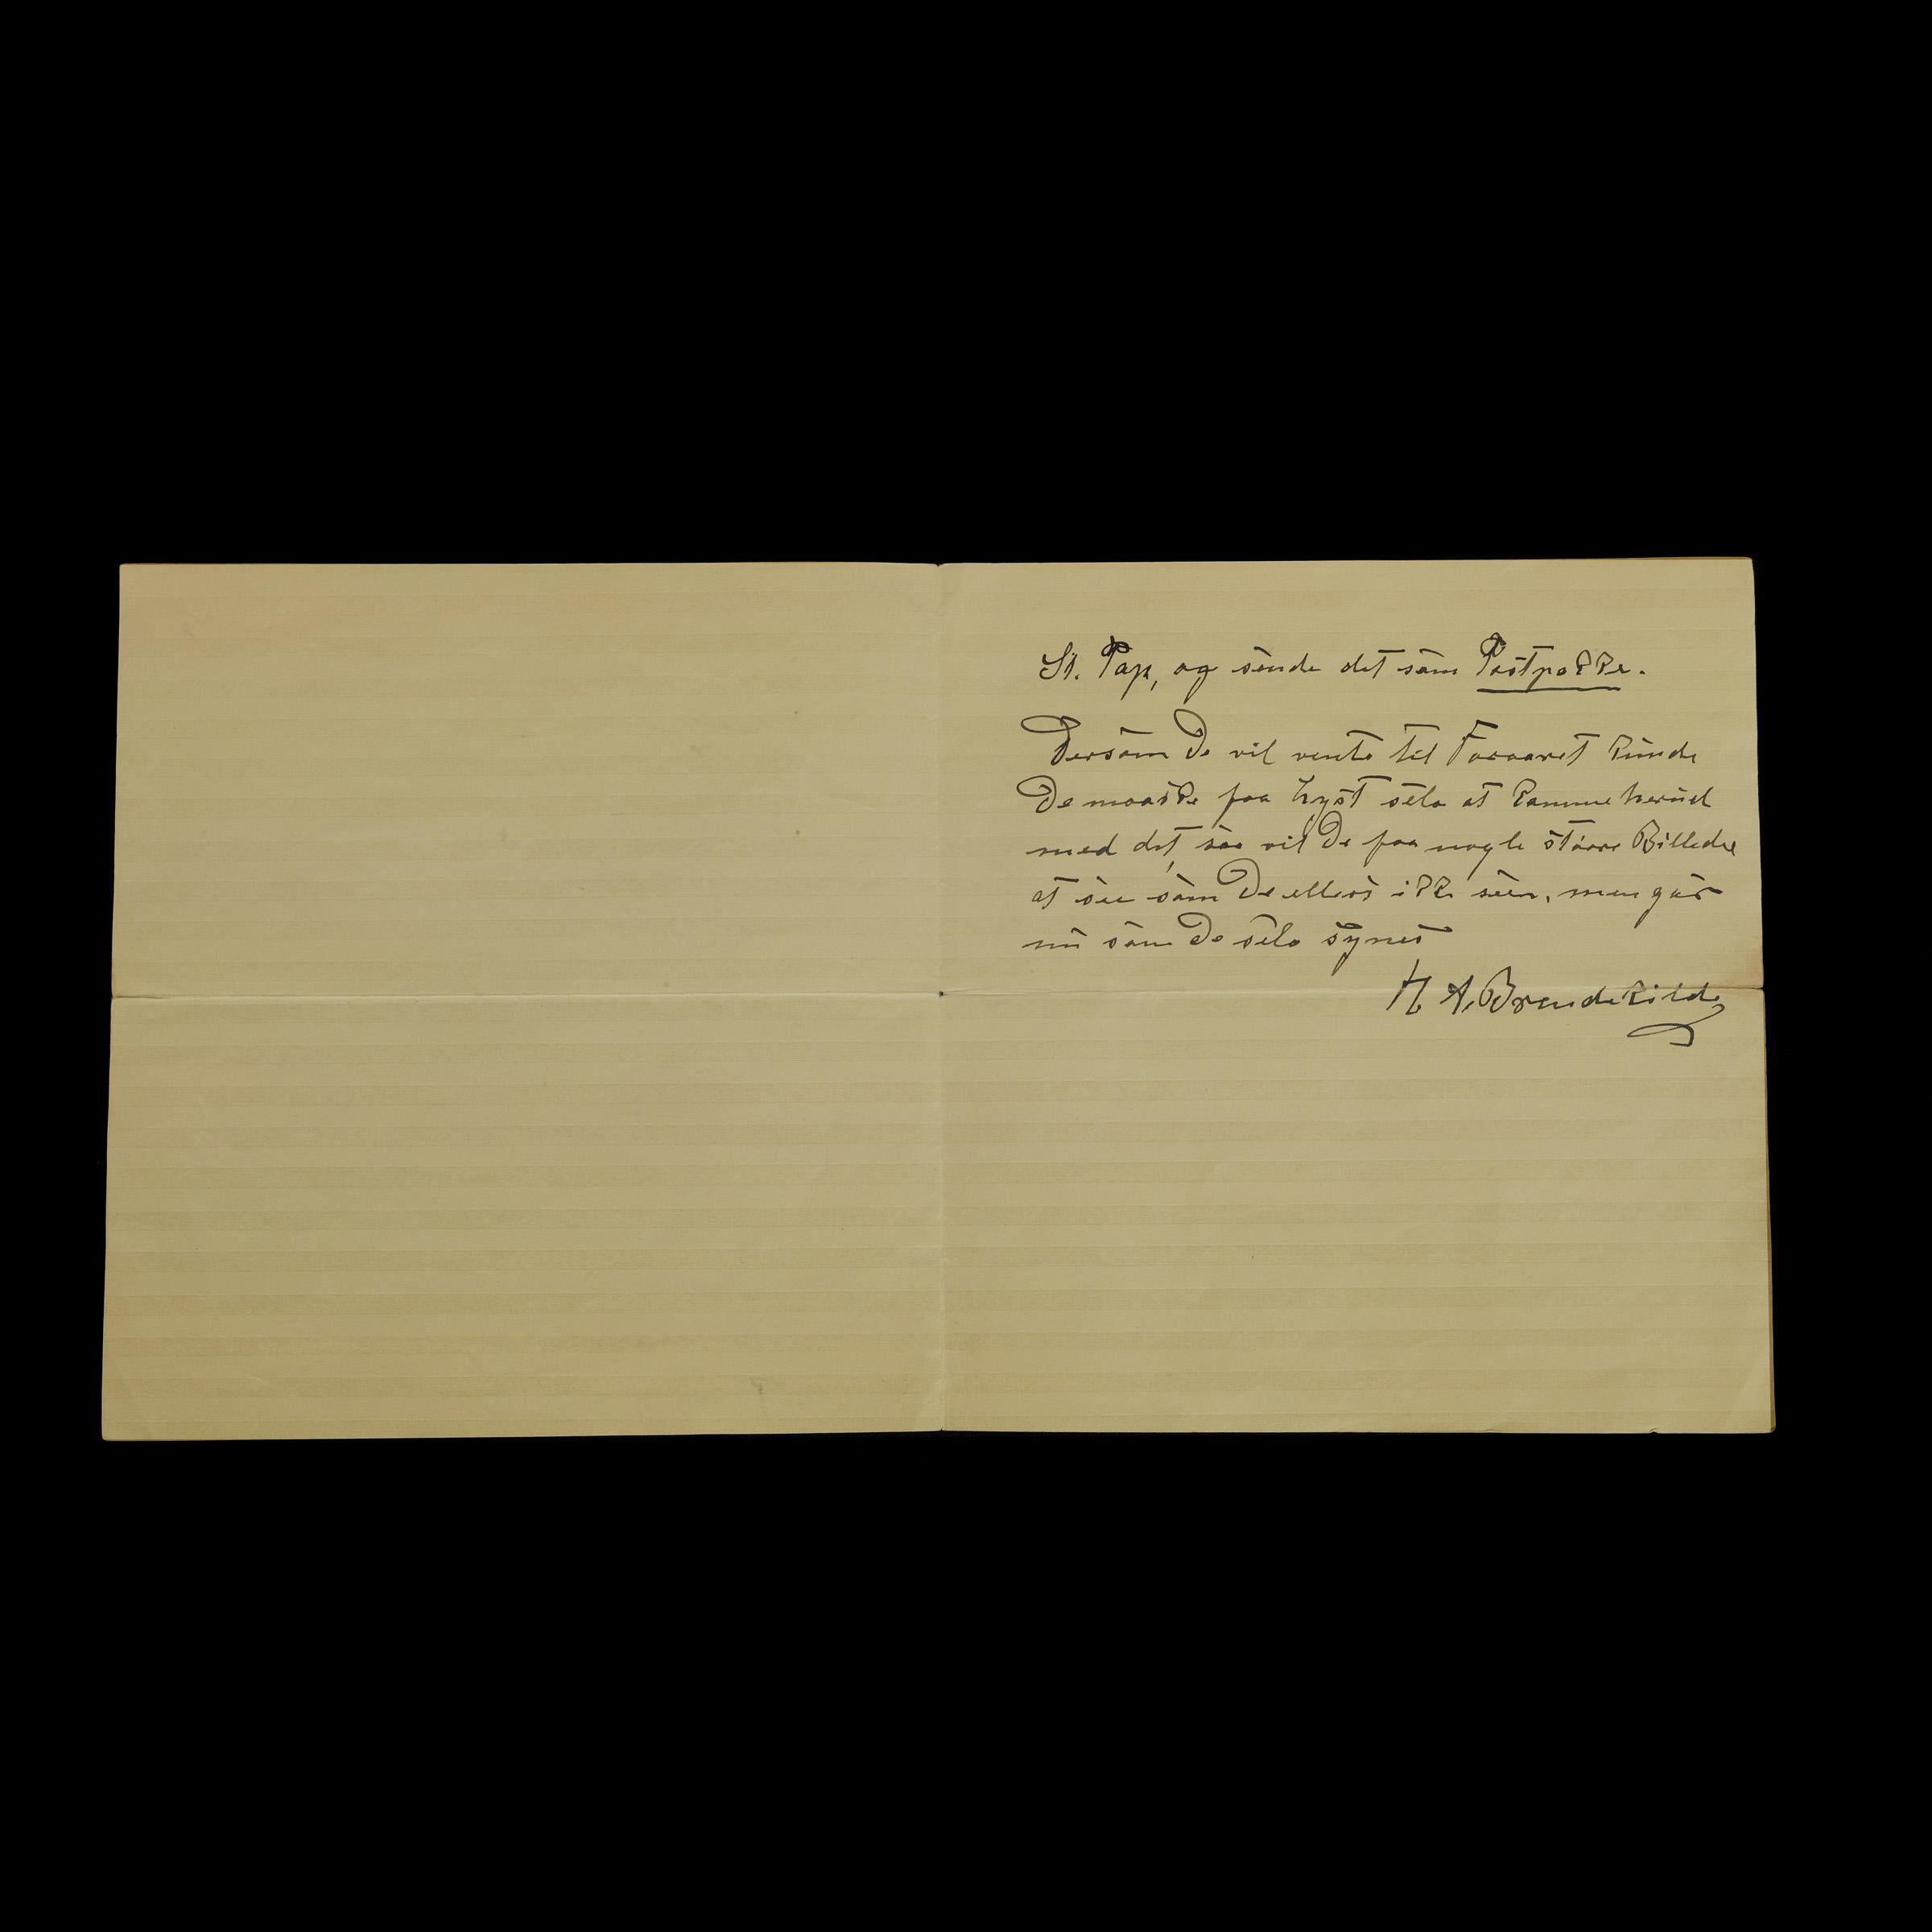 St. Pap, og sende det som Postpakke.
Dersom De vil vente til Foraaret kunde
De maaske faa Lyst selv at komme herud
med det, saa vil De faa nogle större Billeder
at see som De ellers ikke seer, men gör
nu som De selv synes
H. A. Brendekilde